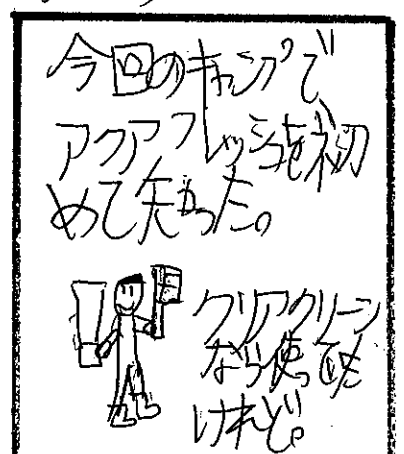 今回のキャンプで
アクアフレッシュを初
めて知った。
クリアクリーン
なら使ってた
けれど。